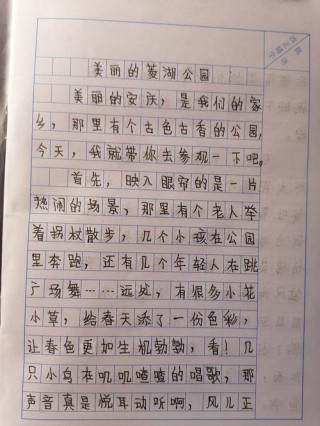 美丽的菱湖公园
美丽的安庆，是我们的家
乡，那里有个古色古香的公园，
今天，我就带你去参观一下吧。
首先，映入眼帘的是一片
热闹的场景，那里有个老人举
着拐杖散步，几个小孩在公园
里奔跑，还有几个年轻人在跳
广场舞……远处，有很多小花
小草，给春天添了一份色彩，
让春色更加生机勃勃，看！几
只小鸟在叽叽喳喳的唱歌，那
声音真是悦耳动听啊，风儿正